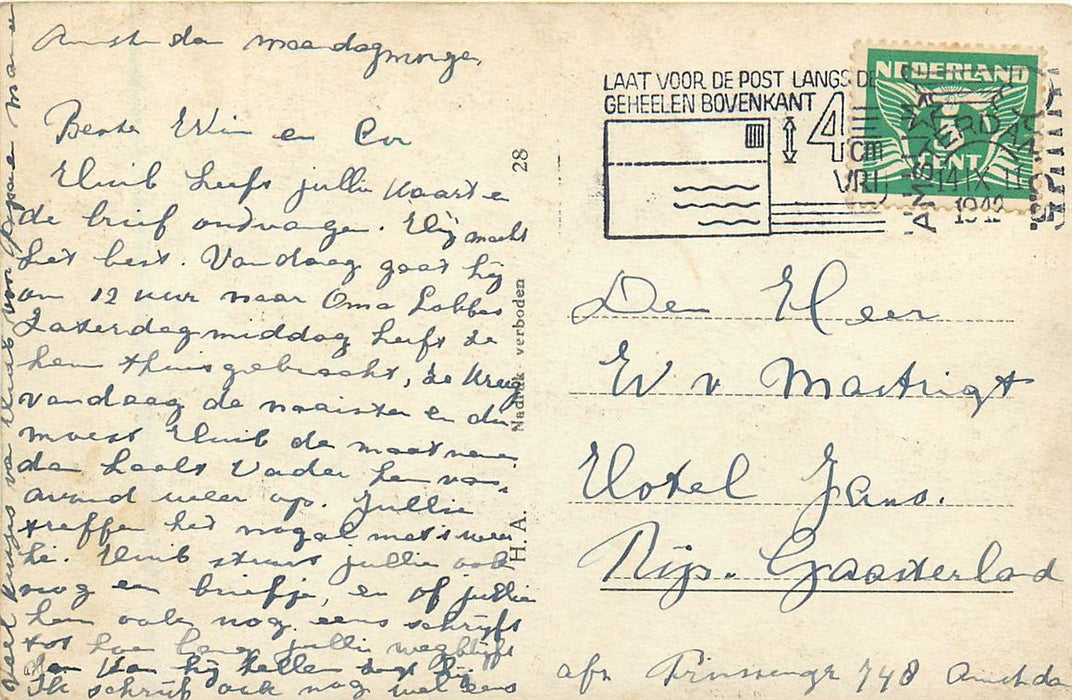 Amsterdam maandagmorgen
Beste Wim en Cor
Huib heeft jullie kaart en
de brief ontvangen. Hij maakt
het best. Vandaag gaat hij
om 12 uur naar Oma Lobbes
Zaterdagmiddag heeft ze
hem thuisgebracht, ze kreeg
vandaag de naaister en dan
moest Huib de maat nemen
dan haalt Vader hem van-
avond weer op. Jullie
treffen het nogal met 't weer
hè. Huib stuurt jullie ook
nog een briefje, en of jullie
hem ook nog eens schrijft
tot hoe lang jullie wegblijft
dan kan hij tellen zegt hij
Ik schrijf ook nog wel eens
Veel kusjes van Huib voor
28
Nadruk verboden
H. A.
LAAT VOOR DE POST LANGS DE
GEHEELEN BOVENKANT 4 cm
VRIJ
NEDERLAND
CENT
AMSTERDAM
14 IX
1942
Den Heer
W v Mastrigt
Hotel Jans.
Rijs. Gaasterland
afz Prinsengr 748 Amsterdam